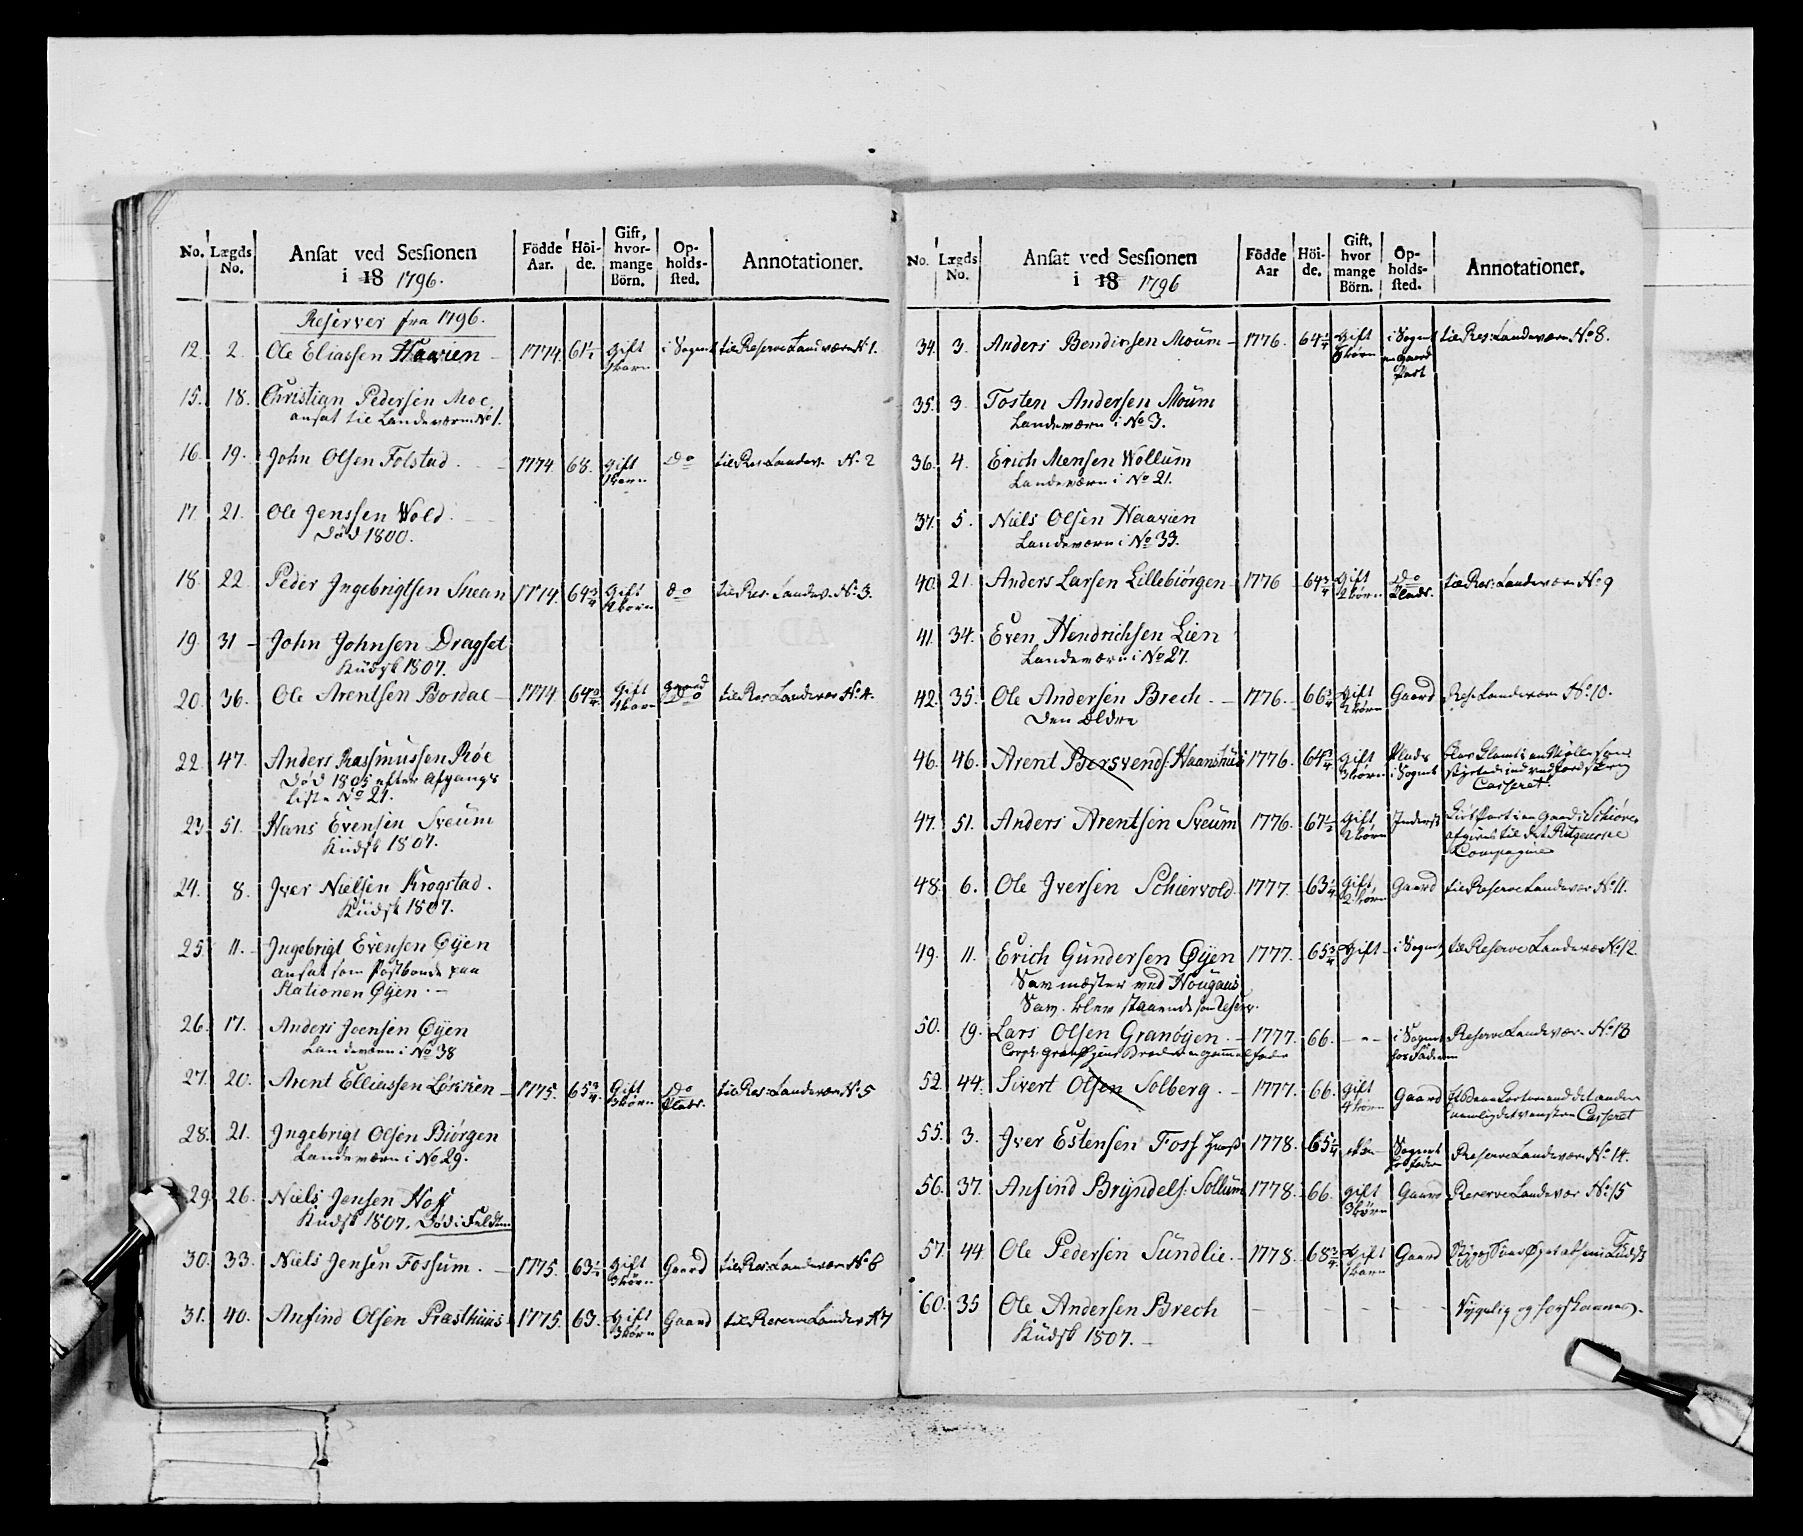 No. Lægds No. Ansat ved Sessionen i 18 1796. Födde Aar. Höi-de. Gift, hvor-mange Börn. Op-holds-sted. Annotationer.
Reserver fra 1796.
12. 2. Ole Eliassen Haavien 1774. 61 1/2 Gift 1 barn i Sognet til Reserve Landværn No 1.
15. 18. Christian Pedersen Moe.
ansat til Landeværn No 1.
16. 19. John Olsen Folstad. 1774 68. Gift 1 barn Do til Res. Landev. No 2
17. 21. Ole Jenssen Wold.
Död 1800.
18. 22. Peder Ingebrigtsen Snean 1774. 64 3/4 Gift Do til Res. Landev. No 3.
19. 31 John Johnsen Dragset
Küdsk 1807.
20. 36. Ole Arentsen Bordal 1774 64 Gift 1 barn Gaard til Res. Landevær No 4.
22. 47. Anders Rasmussen Röe
Död 1805 efter Afgangs
Liste No 21.
23. 51. Hans Evensen Sveum
Küdsk 1807.
24. 8. Iver Nielsen Krogstad.
Küdsk 1807.
25. 11. Ingebrigt Evensen Øyen
ansat som Postbonde paa
Stationen Øyen.
26. 17. Anders Joensen Øyen
Landeværn i No 38
27. 20. Arent Elliassen Løkken 1775. 65 3/4 Gift 3 börn Do Plads. til Res. Landeværn No 5
28. 21. Ingebrigt Olsen Biörgen
Landeværn i No 29.
29. 26. Niels Jensen Hoff
Küdsk 1807. Död i Feldten
30. 33. Niels Jensen Fossum. 1775. 63 1/2 Gift 3 börn Gaard til Res. Landeværn No 6
31. 40. Anfind Olsen Præsthuus 1775. 63. Gift 3 börn Gaard til Reserve Landev No 7
No. Lægds No. Ansat ved Sessionen i 18 1796 Födde Aar Höi-de. Gift, hvor mange Börn. Op-holds-sted. Annotationer.
34. 3. Anders Bendixsen Moum 1776. 64 1/4 Gift börn i Sognet en Gaard Part til Res. Landeværn No 8.
35. 3. Tosten Andersen Moum
Landeværn i No 3.
36. 4. Erich Mensen Wollum
Landeværn i No 21.
37. 5. Niels Olsen Haavien
Landeværn i No 33.
40. 21. Anders Larsen Lillebiörgen 1776 64 3/4 Gift 2 börn Do Plads. til Res. Landeværn No 9
41. 34. Even Hendrichsen Lien
Landeværn i No 27.
42. 35. Ole Andersen Brech. 1776. 66 3/4 Gift 2 börn Gaard Res. Landeværn No 10.
Den Eldre
46. 46. Arent Bersvends. Haanshuus 1776. 64 Gift 3 börn Plads i Sognet
Casseret.
47. 51. Anders Arentsen Sveum 1776. 67 1/2 Gift 2 börn Inderst
afgives til det
Compagnie
48. 6. Ole Iversen Schiervold 1777. 63 1/4 Gift 2 börn Gaard til Reserve Landevær No 11.
49. 11. Erich Gundersen Øyen 1777. 65 3/4 Gift i Sognet til Reserve Landevær No 12.
Savmæster ved Hougans
Sav. blev staaende som Reserv.
50. 19. Lars Olsen Granöyen. 1777. 66. i Sognet hos Faderen Reserve Landeværn No 13
52. 44. Sivert Olsen Solberg. 1777. 66. Gift 4 börn Gaard
Casseret
55. 3. Iver Estensen Foss 1778. 65 1/4 Sognet Reserve Landeværn No 14.
56. 37. Anfind Bryndels. Sollum 1778. 66. gift 3 börn Gaard Reserve Landevær No 15
57. 44. Ole Pedersen Sundlie. 1778. 68 3/4 Gift 1 barn Gaard
60. 35 Ole Andersen Brech
Küdsk 1807.